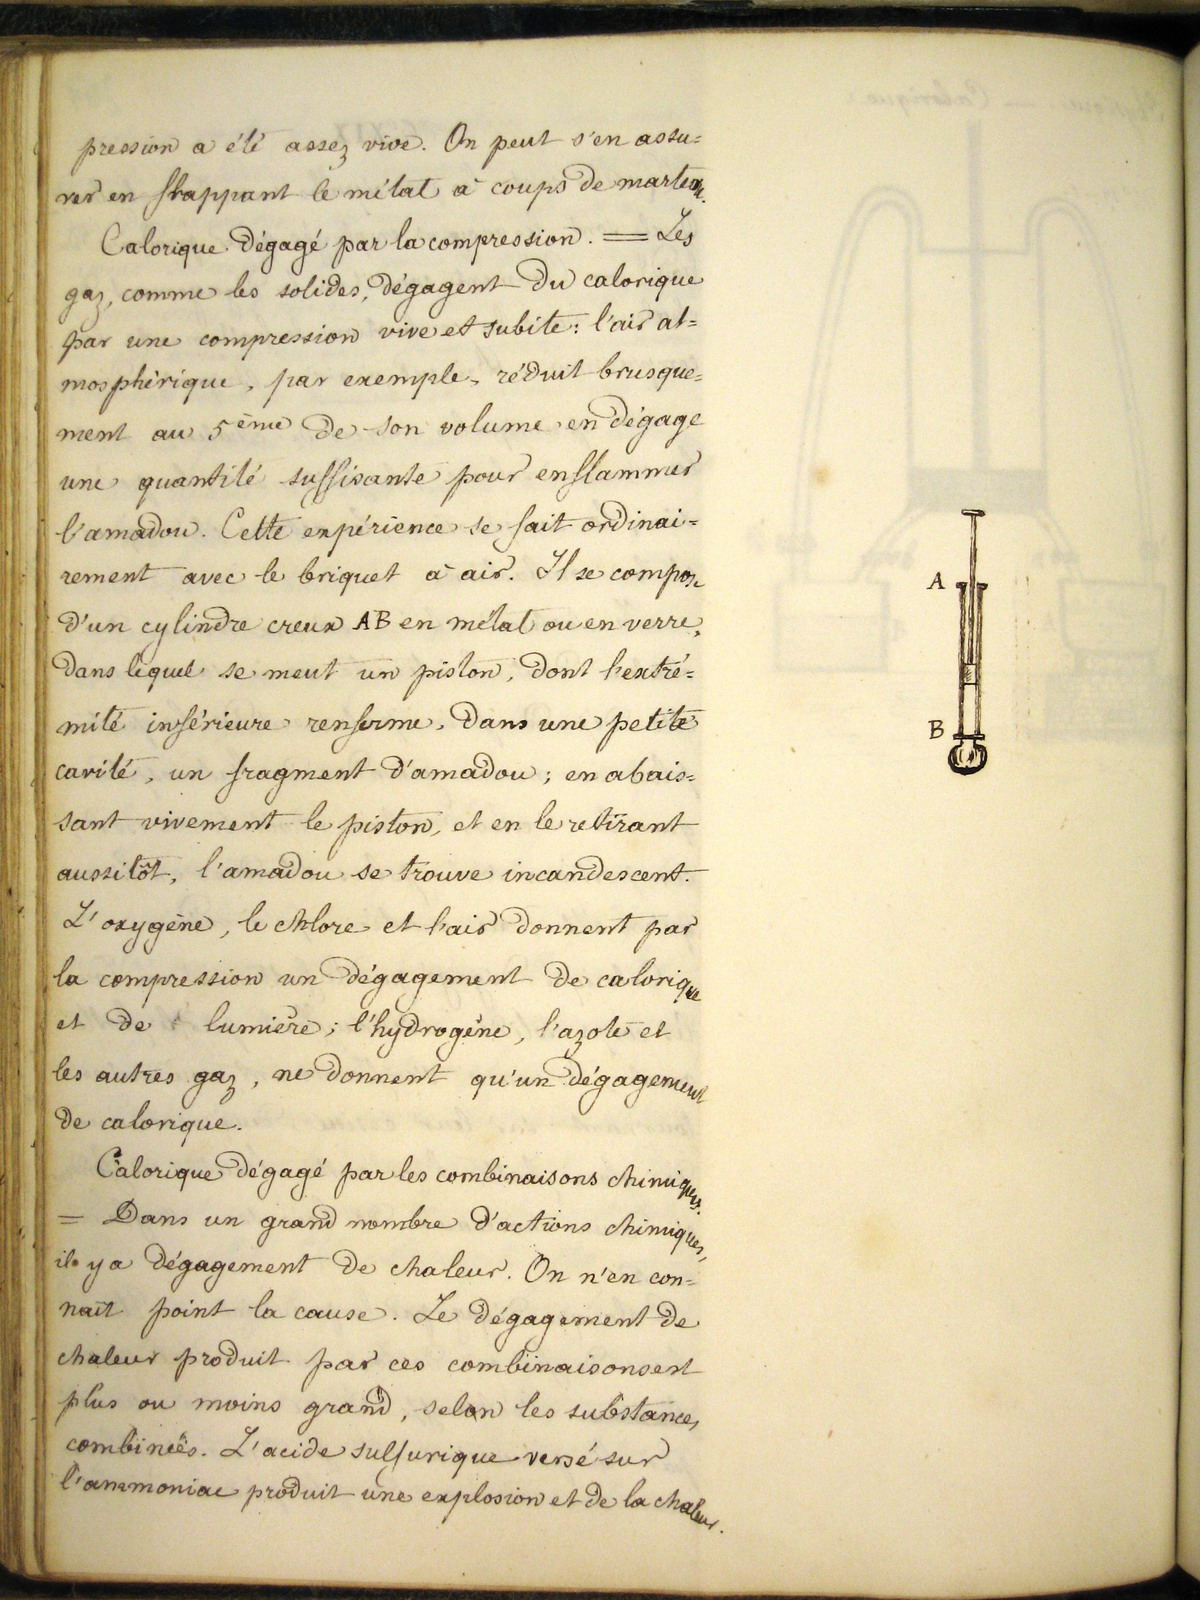 pression a été assez vive. On peut s'en assu=
rer en frappant le métal à coups de marteau.
Calorique dégagé par la compression. = Les
gaz, comme les solides, dégagent du calorique
par une compression vive et subite : l'air at=
mosphérique, par exemple, réduit brusque=
ment au 5ème de son volume en dégage
une quantité suffisante pour enflammer
l'amadou. Cette expérience se fait ordinai=
rement avec le briquet à air. Il se compose
d'un cylindre creux AB en métal ou en verre,
dans lequel se meut un piston, dont l'extré=
mité inférieure renferme, dans une petite
cavité, un fragment d'amadou ; en abais=
sant vivement le piston, et en le retirant
aussitôt, l'amadou se trouve incandescent.
L'oxygène, le chlore et l'air donnent par
la compression un dégagement de calorique
et de lumière ; l'hydrogène, l'azote et
les autres gaz, ne donnent qu'un dégagement
de calorique.
Calorique dégagé par les combinaisons chimiques.
= Dans un grand nombre d'actions chimiques,
il y a dégagement de chaleur. On n'en con=
nait point la cause. Le dégagement de
chaleur produit par ces combinaisons est
plus ou moins grand, selon les substances
combinées. L'acide sulfurique versé sur
l'ammoniac produit une explosion et de la chaleur.
A
B